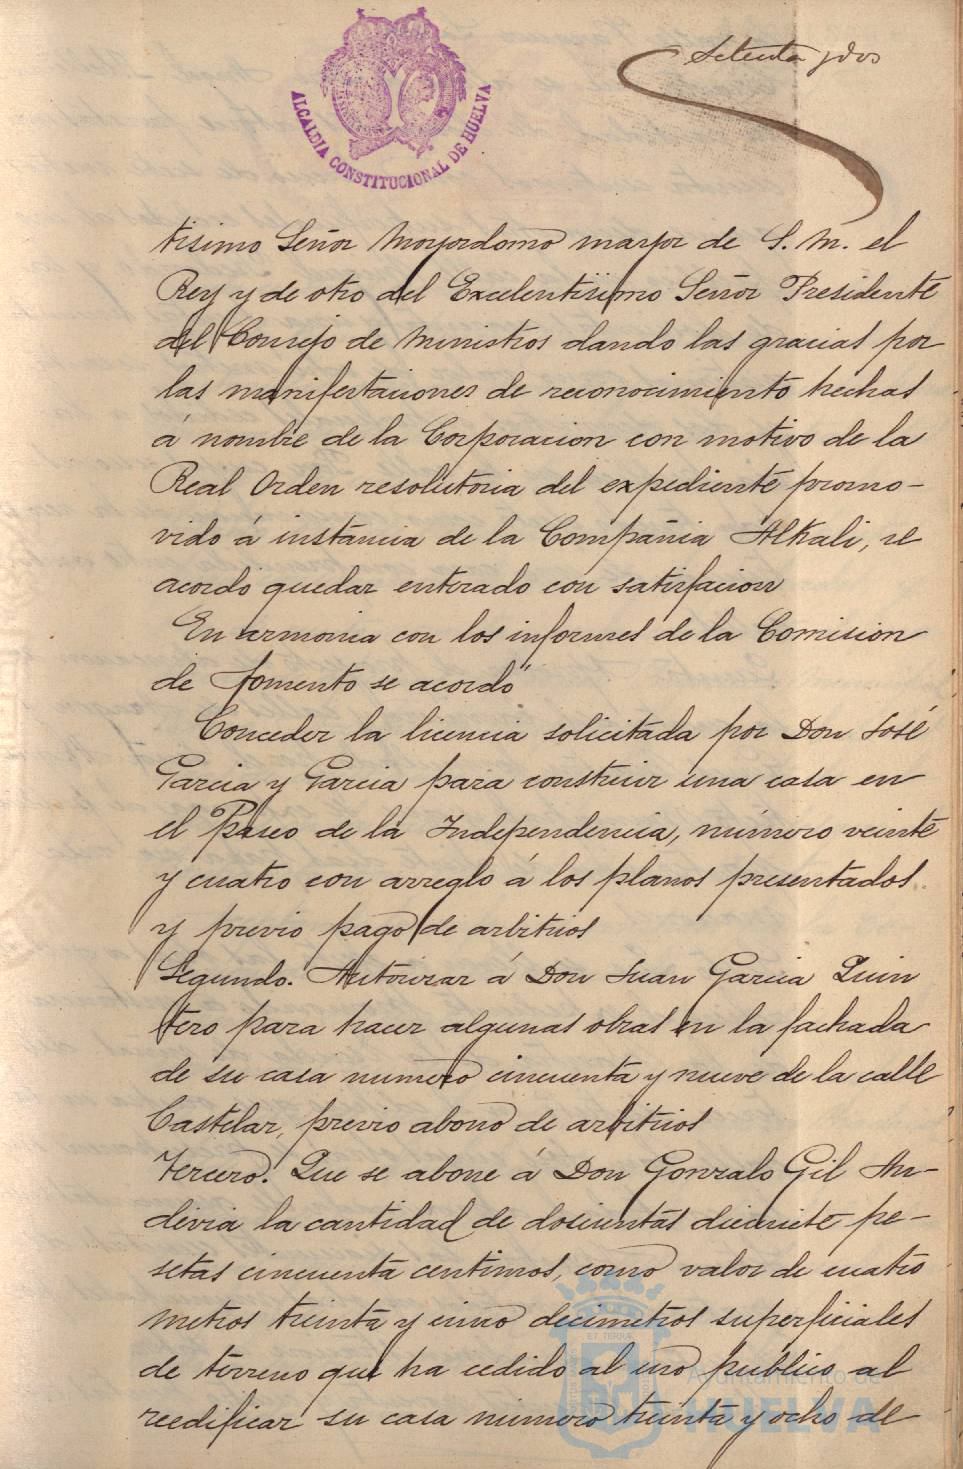 Setenta y dos
ALCALDIA CONSTITUCIONAL DE HUELVA
tisimo Señor Mayordomo mayor de S. M. el
Rey y de otro del Excelentisimo Señor Presidente
del Consejo de Ministros dando las gracias por
las manifestaciones de reconocimiento hechas
á nombre de la Corporacion con motivo de la
Real Orden resolutoria del expediente promo-
vido á instancia de la Compañia Alkali, se
acordó quedar enterado con satisfacion
En armonia con los informes de la Comision
de fomento se acordó
Conceder la licencia solicitada por Don José
Garcia y Garcia para construir una casa en
el Paseo de la Independencia, número veinte
y cuatro con arreglo á los planos presentados
y previo pago de arbitrios
Segundo. Autorizar á Don Juan Garcia Quin
tero para hacer algunas obras en la fachada
de su casa numero cincuenta y nueve de la calle
Castelar, previo abono de arbitrios
Tercero. Que se abone á Don Gonzalo Gil An-
divia la cantidad de doscientas diecisiete pe-
setas cincuenta centimos, como valor de cuatro
metros treinta y cinco decimetros superficiales
de terreno que ha cedido al uso publico al
reedificar su casa número treinta y ocho de
ET TERRA
Ayuntamiento de
HUELVA